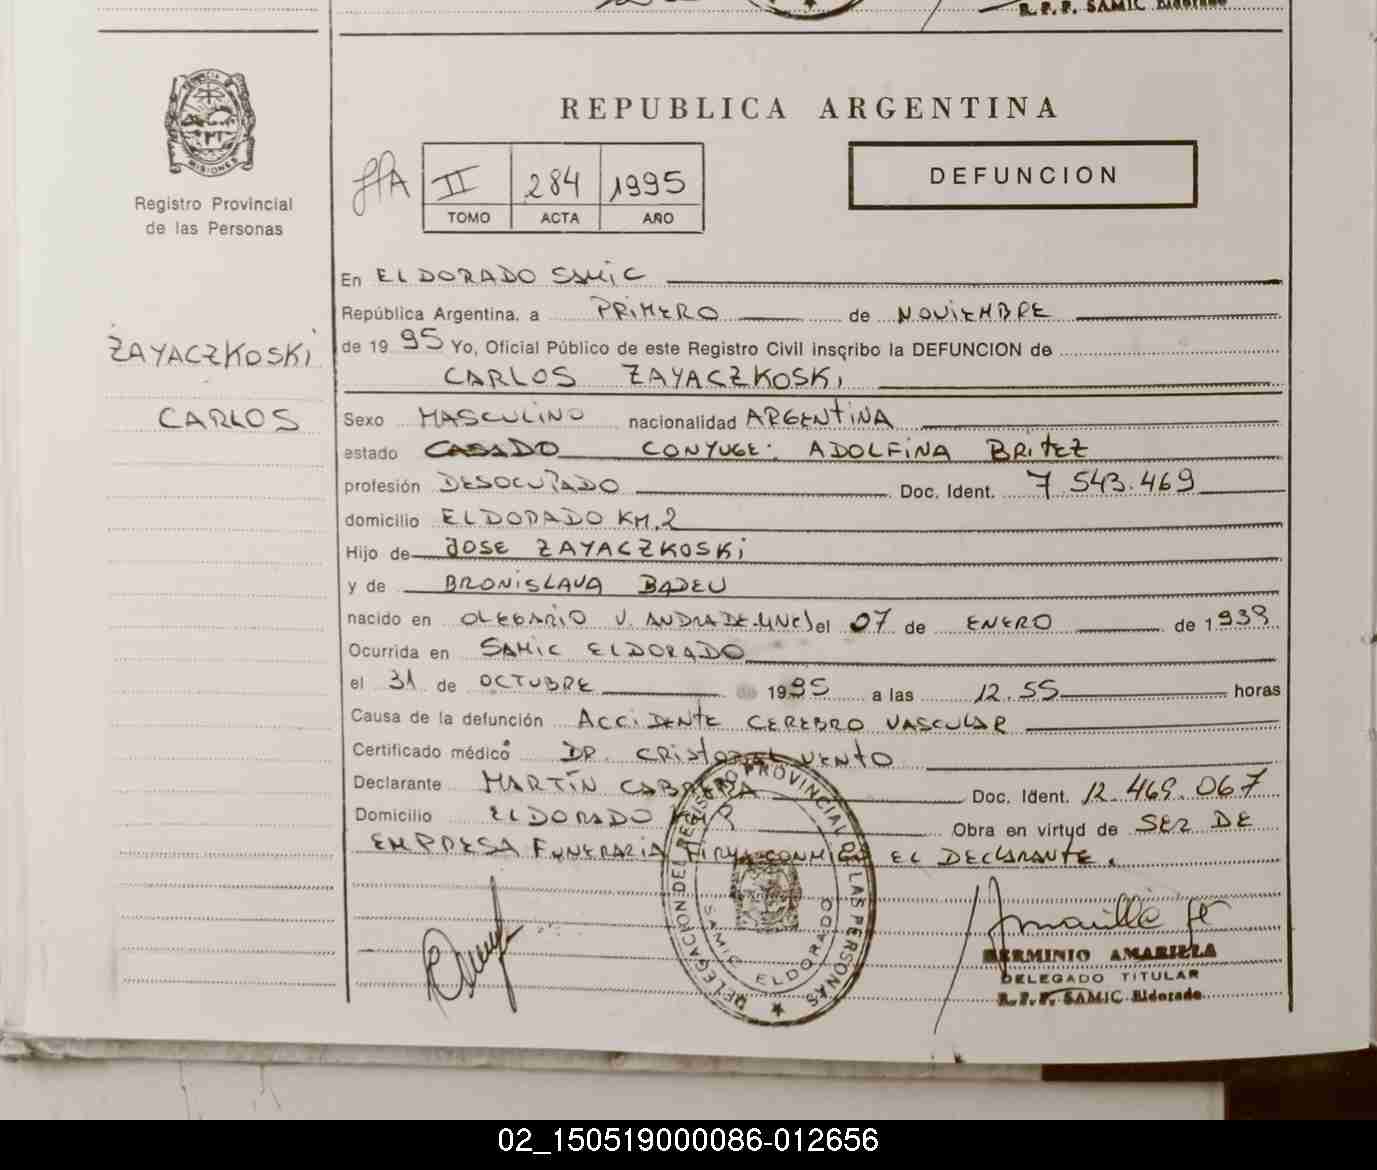 R.P.P. SAMIC Eldorado
PROVINCIA DE
MISIONES
Registro Provincial
de las Personas
REPUBLICA ARGENTINA
II 284 1995
TOMO ACTA AÑO
DEFUNCION
ZAYACZKOSKI
CARLOS
En ELDORADO SAMIC
República Argentina, a PRIMERO de NOVIEMBRE
de 1995 Yo, Oficial Público de este Registro Civil inscribo la DEFUNCION de
CARLOS ZAYACZKOSKI
Sexo MASCULINO nacionalidad ARGENTINA
estado CASADO CONYUGE: ADOLFINA BRITEZ
profesión DESOCUPADO Doc. Ident. 7 543.469
domicilio ELDORADO KM.2
Hijo de JOSE ZAYACZKOSKI
y de BRONISLAVA BADEU
nacido en OLEGARIO V. ANDRADE-MNES el 07 de ENERO de 1939
Ocurrida en SAMIC ELDORADO
el 31 de OCTUBRE de 1995 a las 12.55 horas
Causa de la defunción ACCIDENTE CEREBRO VASCULAR
Certificado médico DR. CRISTOBAL VENTO
Declarante MARTÍN CABRERA Doc. Ident. 12.469.067
Domicilio ELDORADO KM 9 Obra en virtud de SER DE
EMPRESA FUNERARIA FIRMA CONMIGO EL DECLARANTE.
DELEGACION DEL REGISTRO PROVINCIAL DE LAS PERSONAS
SAMIC ELDORADO
HERMINIO AMARILLA
DELEGADO TITULAR
R.P.P. SAMIC Eldorado
02_150519000086-012656